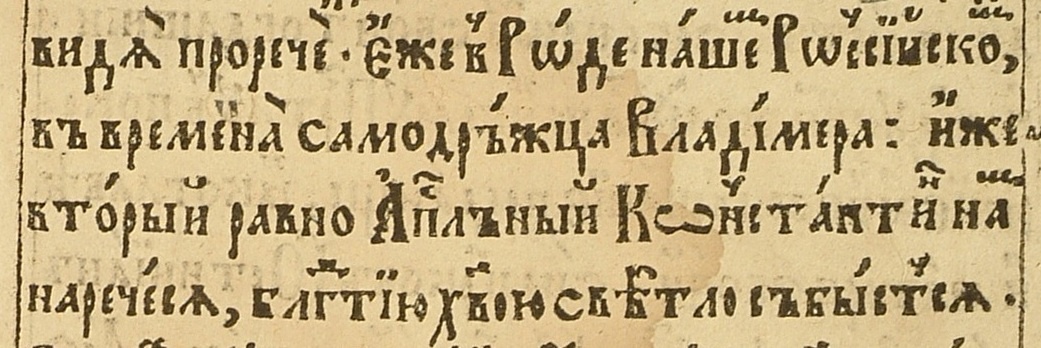 видѧ̀ проречѐ · Е҆́же в̾ Рѡ́де на́шеⷨ Рѡс̾сїйскоⷨ,
въ времена̀ самодръ́жца Владі́мера : и҆́же
вто́рый равно А҆пⷭ҇лъный Кѡн̾ста́нтиⷩ҇ наⷨ
нарече́сѧ, блгⷣтїю хв҃ою свѣ́тло събы́стсѧ ·